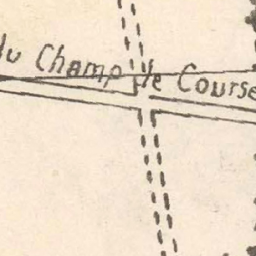 du Champ de Course